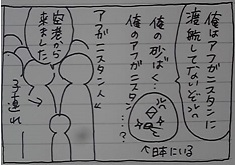 俺はアフガニスタンに
渡航してないぞ
俺の砂ばく…
俺のアフガニスタン…?
↑日本にいる
アフガニスタン人←
空港から
来ました
子連れ→